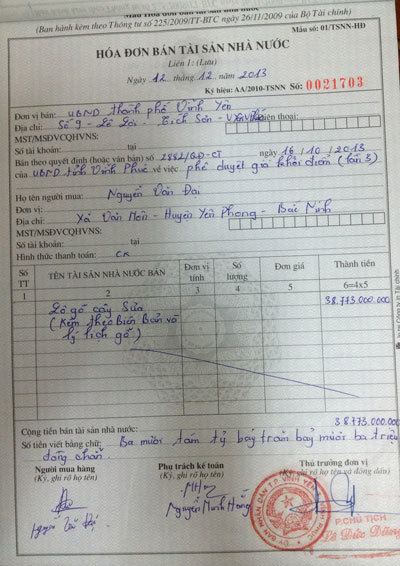 (Ban hành kèm theo Thông tư số 225/2009/TT-BTC ngày 26/11/2009 của Bộ Tài chính)
Mẫu số: 01/TSNN-HĐ
HÓA ĐƠN BÁN TÀI SẢN NHÀ NƯỚC
Liên 1: (Lưu)
Ngày 12 tháng 12 năm 2013
Ký hiệu: AA/2010-TSNN Số: 0021703
Đơn vị bán: UBND thành phố Vĩnh Yên
Địa chỉ: Số 9 - Lê Lợi - Tích Sơn - Điện thoại:
MST/MSĐVCQHVNS:
Số tài khoản: tại
Bán theo quyết định (hoặc văn bản) số 2882/QĐ-CT ngày 16/10/2013
của UBND tỉnh Vĩnh Phúc về việc phê duyệt giá khởi điểm (lần 3)
Họ tên người mua: Nguyễn Văn Đại
Đơn vị:
Địa chỉ: Xã Văn Môn - Huyện Yên Phong - Bắc Ninh
MST/MSĐVCQHVNS:
Số tài khoản: tại
Hình thức thanh toán: CK
Số TT TÊN TÀI SẢN NHÀ NƯỚC BÁN Đơn vị tính Số lượng Đơn giá Thành tiền
1 2 3 4 5 6=4x5
Lô gỗ cây Sưa 38.773.000.000
(Kèm theo Biên bản và
lý lịch gỗ)
Cộng tiền bán tài sản nhà nước: 38773.000.000
Số tiền viết bằng chữ: Ba mươi tám tỷ bảy trăm bảy mươi ba triệu
đồng chẵn.
Người mua hàng Phụ trách kế toán Thủ trưởng đơn vị
(Ký, ghi rõ họ tên) (Ký, ghi rõ họ tên) (Ký, ghi rõ họ tên và đóng dấu)
Nguyễn Minh Hằng
P.CHỦ TỊCH
Lê Đức Dũng